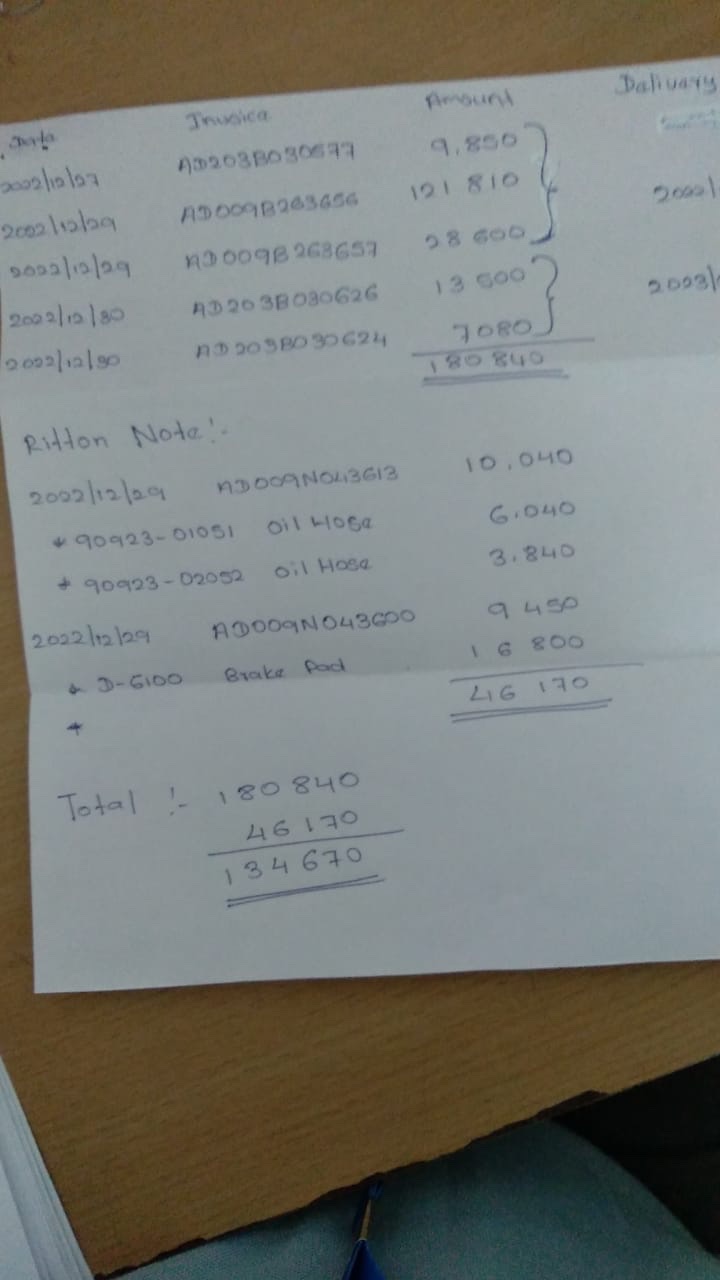 Date Invoice Amount Delivary
2022/12/27 AD203B030577 9,850
2022/12/29 AD009B263656 121 810 2022/
2022/12/29 AD009B263657 28 600
2022/12/30 AD203B030626 13 500 2023/
2022/12/30 AD203B030624 7080
180 840
Ritton Note:-
2022/12/29 AD009N043613 10,040
* 90923-01051 Oil Hose 6,040
* 90923-02052 Oil Hose 3,840
2022/12/29 AD009N043600 9 450
* D-6100 Brake Pad 16 800
* 46 170
Total :- 180 840
46 170
134 670